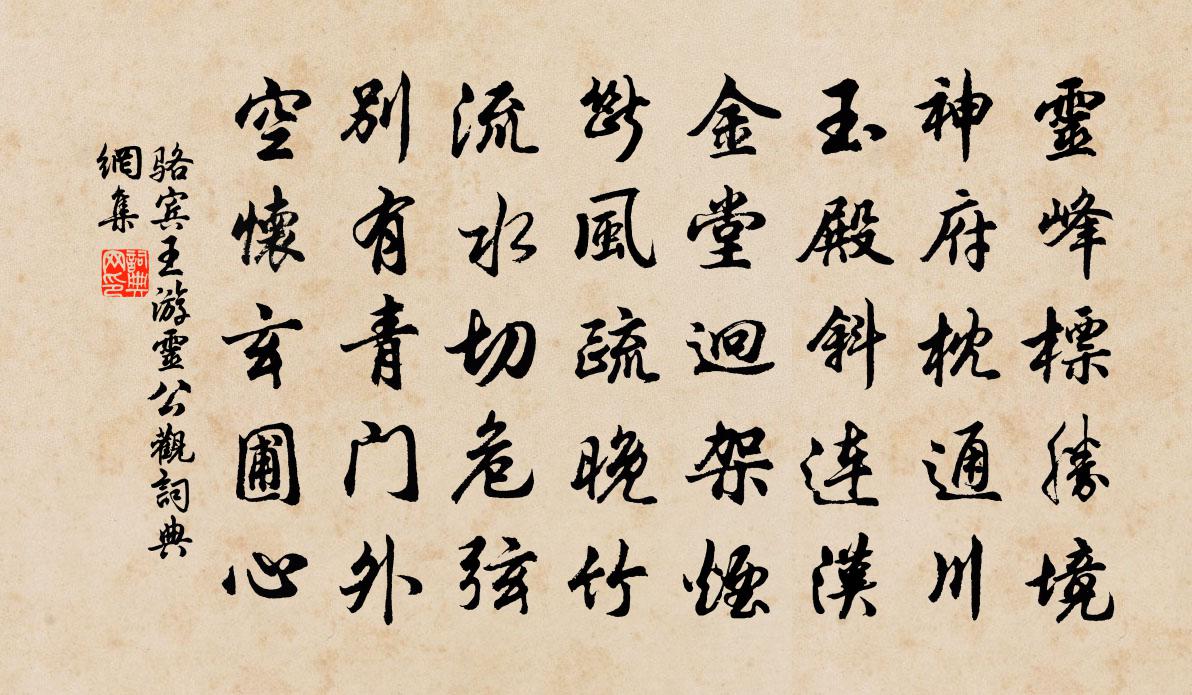 靈峰標勝境
神府枕通川
玉殿斜连漢
金堂迥架煙
斷風疏晚竹
流水切危弦
别有青门外
空懷玄圃心
骆宾王游靈公觀詞典
網集
詞典
网印